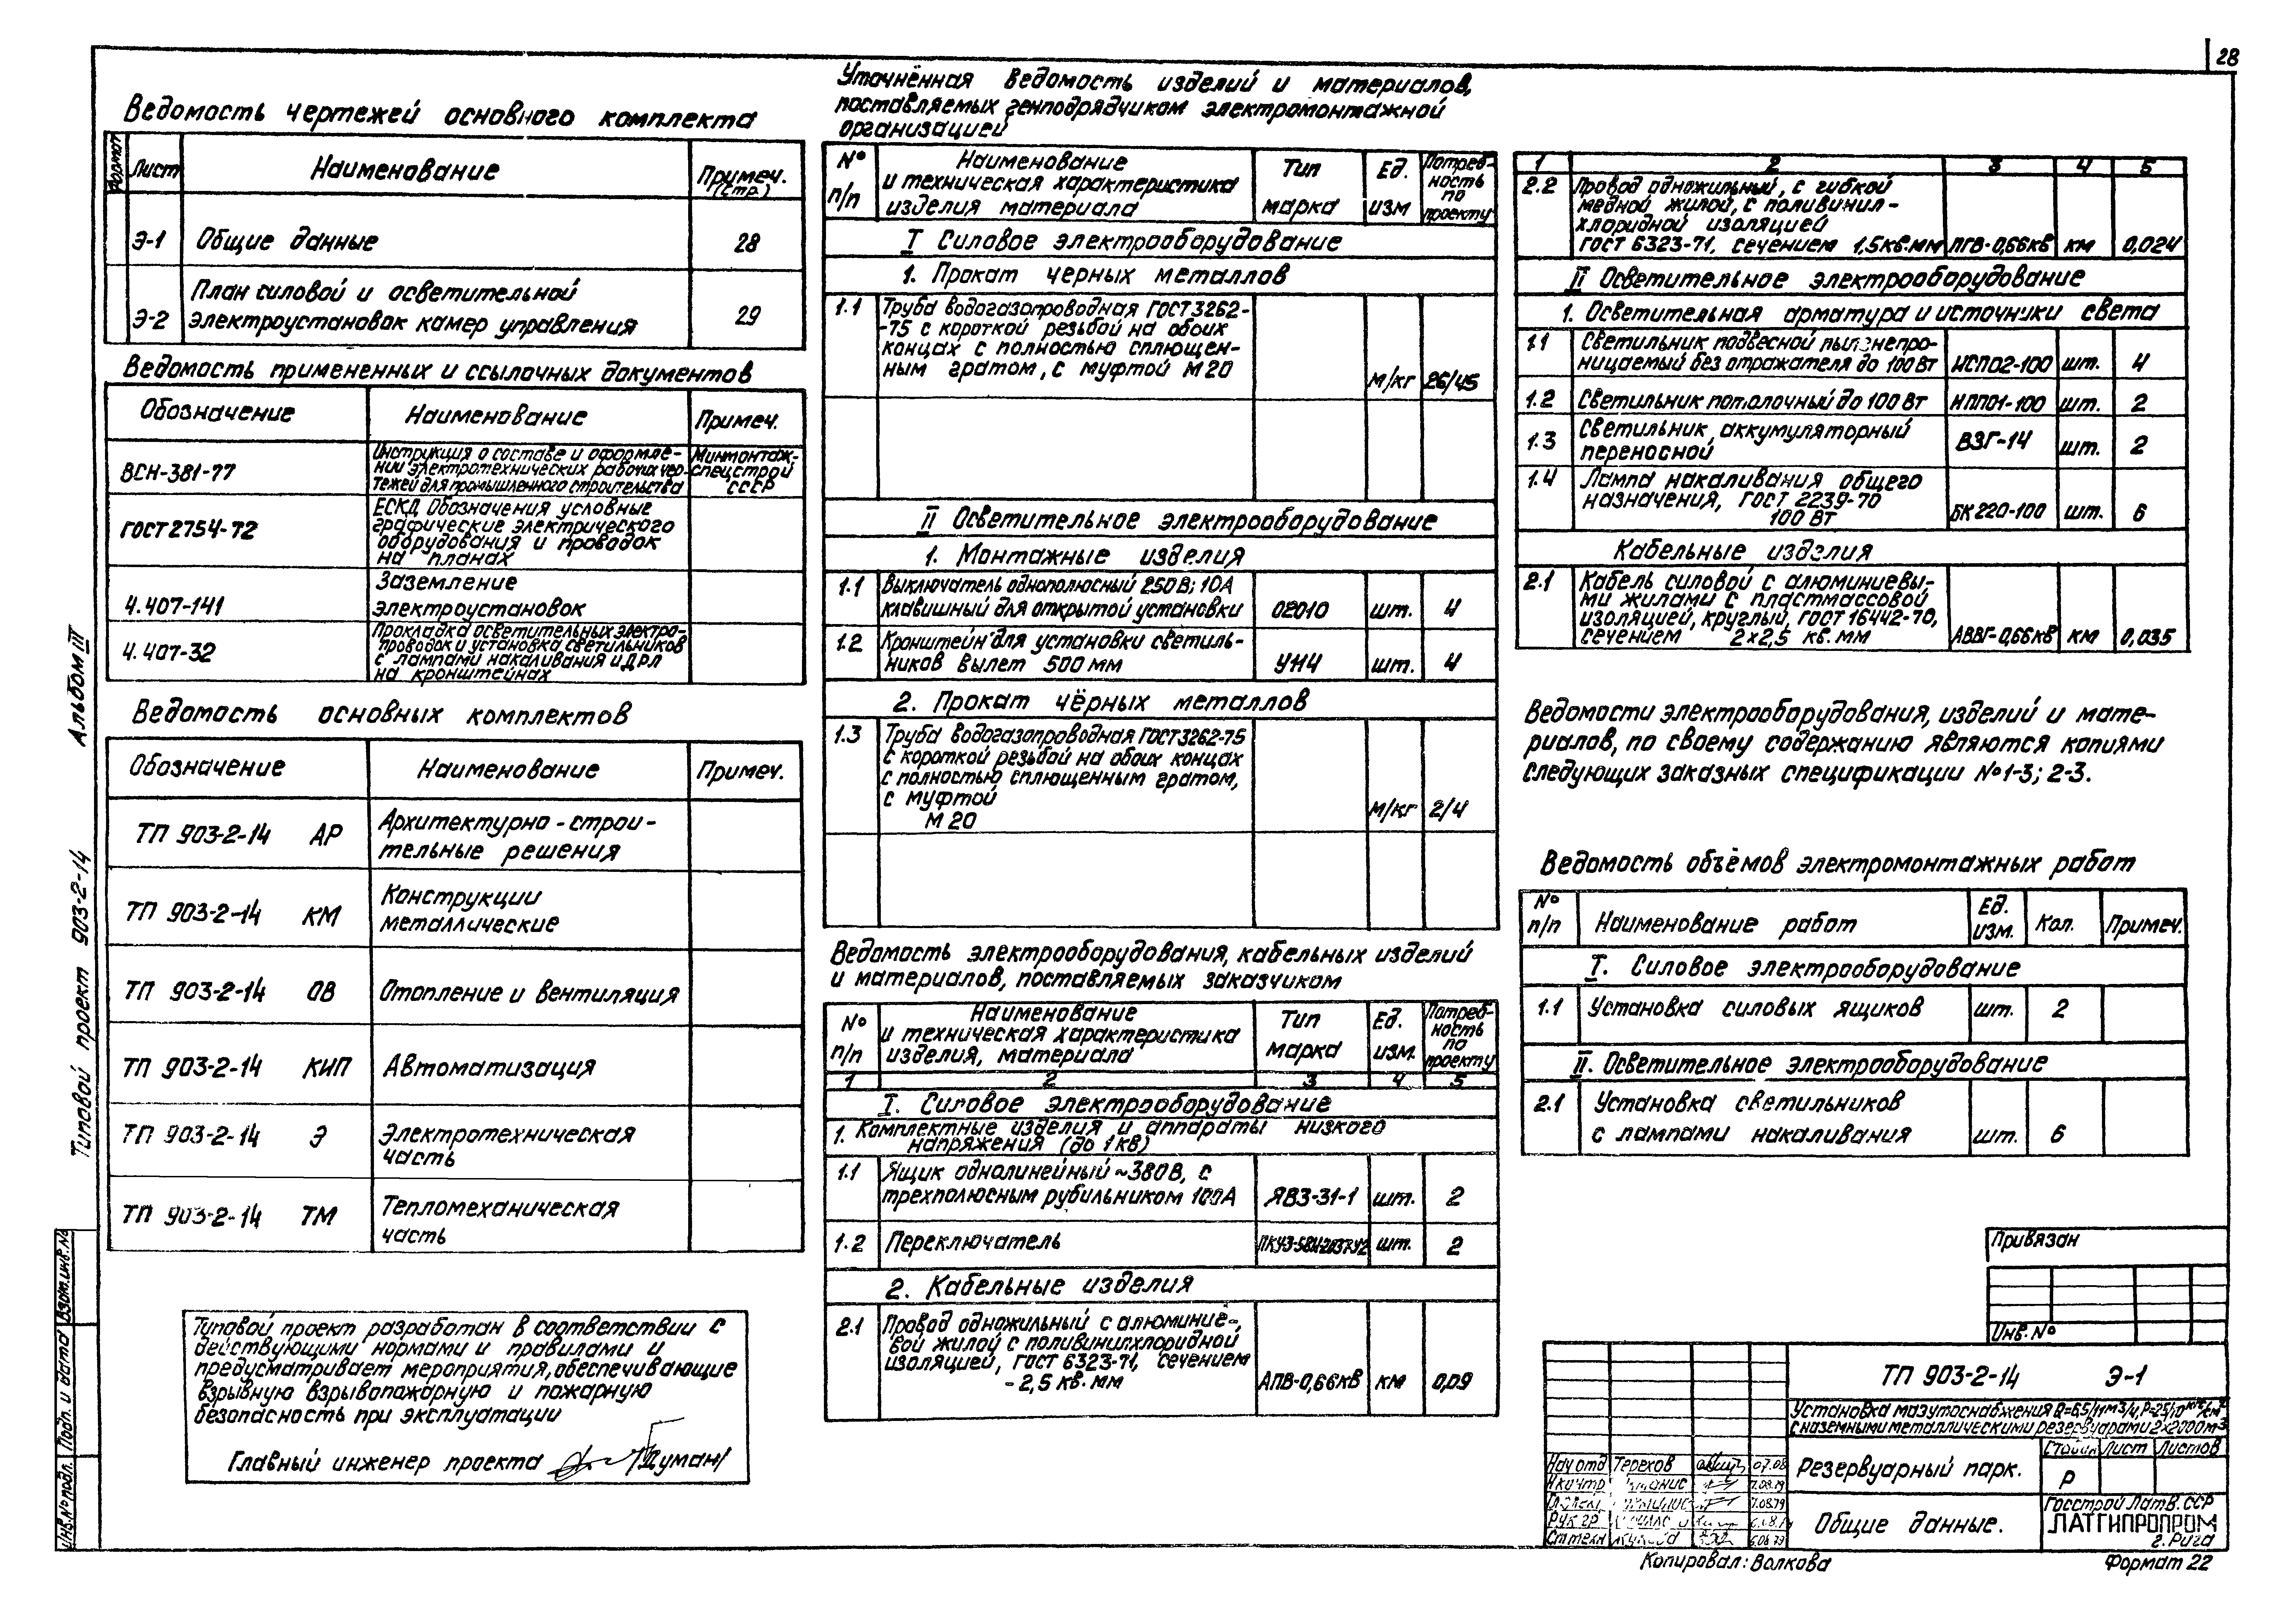 28
Ведомость чертежей основного комплекта
Формат Лист Наименование Примеч. (стр.)
Э-1 Общие данные 28
План силовой и осветительной
Э-2 электроустановок камер управления 29
Ведомость примененных и ссылочных документов
Обозначение Наименование Примеч.
Инструкция о составе и оформле- Минмонтаж-
ВСН-381-77 нии электротехнических рабочих чер- спецстрой
тежей для промышленного строительства СССР
ЕСКД Обозначения условные
ГОСТ 2754-72 графические электрического
оборудования и проводок
на планах
Заземление
4.407-141 электроустановок
Прокладка осветительных электро-
4.407-32 проводок и установка светильников
с лампами накаливания и ДРЛ
на кронштейнах
Ведомость основных комплектов
Обозначение Наименование Примеч.
ТП 903-2-14 АР Архитектурно-строи-
тельные решения
ТП 903-2-14 КМ Конструкции
металлические
ТП 903-2-14 ОВ Отопление и вентиляция
ТП 903-2-14 КИП Автоматизация
ТП 903-2-14 Э Электротехническая
часть
ТП 903-2-14 ТМ Тепломеханическая
часть
Типовой проект разработан в соответствии с
действующими нормами и правилами и
предусматривает мероприятия, обеспечивающие
взрывную взрывопожарную и пожарную
безопасность при эксплуатации
Главный инженер проекта /Туман/
Уточнённая ведомость изделий и материалов,
поставляемых генподрядчиком электромонтажной
организацией
№ п/п Наименование и техническая характеристика изделия материала Тип марка Ед. изм Потреб-ность по проекту
I Силовое электрооборудование
1. Прокат черных металлов
1.1 Труба водогазопроводная ГОСТ 3262-
-75 с короткой резьбой на обоих
концах с полностью сплющен-
ным гратом, с муфтой М20 м/кг 26/45
II Осветительное электрооборудование
1. Монтажные изделия
1.1 Выключатель однополюсный 250В; 10А
клавишный для открытой установки 02010 шт. 4
1.2 Кронштейн для установки светиль-
ников вылет 500мм У114 шт. 4
2. Прокат чёрных металлов
1.3 Труба водогазопроводная ГОСТ 3262-75
с короткой резьбой на обоих концах
с полностью сплющенным гратом,
с муфтой
М20 м/кг 2/4
Ведомость электрооборудования, кабельных изделий
и материалов, поставляемых заказчиком
№ п/п Наименование и техническая характеристика изделия, материала Тип марка Ед. изм. Потреб-ность по проекту
1 2 3 4 5
I. Силовое электрооборудование
1. Комплектные изделия и аппараты низкого
напряжения (до 1кв)
1.1 Ящик однолинейный ~380В, с
трехполюсным рубильником 100А ЯВЗ-31-1 шт. 2
1.2 Переключатель шт. 2
2. Кабельные изделия
2.1 Провод одножильный с алюминие-
вой жилой с поливинилхлоридной
изоляцией, ГОСТ 6323-71, сечением
-2,5 кв. мм АПВ-0,66кв км 0,09
1 2 3 4 5
2.2 Провод одножильный, с гибкой
медной жилой, с поливинил-
хлоридной изоляцией
ГОСТ 6323-71, сечением 1,5кв.мм ПГВ-0,66кв км 0,024
II Осветительное электрооборудование
1. Осветительная арматура и источники света
1.1 Светильник подвесной пыленепро-
ницаемый без отражателя до 100Вт НСП02-100 шт. 4
1.2 Светильник потолочный до 100 Вт НПП01-100 шт. 2
1.3 Светильник, аккумуляторный
переносной ВЗГ-14 шт. 2
1.4 Лампа накаливания общего
назначения, ГОСТ 2239-70
100 Вт БК220-100 шт. 6
Кабельные изделия
2.1 Кабель силовой с алюминиевы-
ми жилами с пластмассовой
изоляцией, круглый, ГОСТ 16442-70,
сечением 2×2,5 кв. мм АВВГ-0,66кв км 0,035
Ведомости электрооборудования, изделий и мате-
риалов, по своему содержанию являются копиями
следующих заказных спецификации №1-3; 2-3.
Ведомость объёмов электромонтажных работ
№ п/п Наименование работ Ед. изм. Кол. Примеч.
I. Силовое электрооборудование
1.1 Установка силовых ящиков шт. 2
II. Осветительное электрооборудование
2.1 Установка светильников
с лампами накаливания шт. 6
Привязан
Инв. №
ТП 903-2-14 Э-1
Установка мазутоснабжения
с наземными металлическими резервуарами 2×2000м³
Резервуарный парк.
Стадия Лист Листов
Р
Общие данные.
Госстрой Латв. ССР
ЛАТГИПРОПРОМ
г. Рига
Нач отд Терехов 07.08
Н контр 7.08.79
7.08.79
Рук гр
Ст техн 6.08.79
Копировал: Волкова Формат 22
Типовой проект 903-2-14 Альбом III
Инв. № подл. Подп. и дата Взам. инв. №